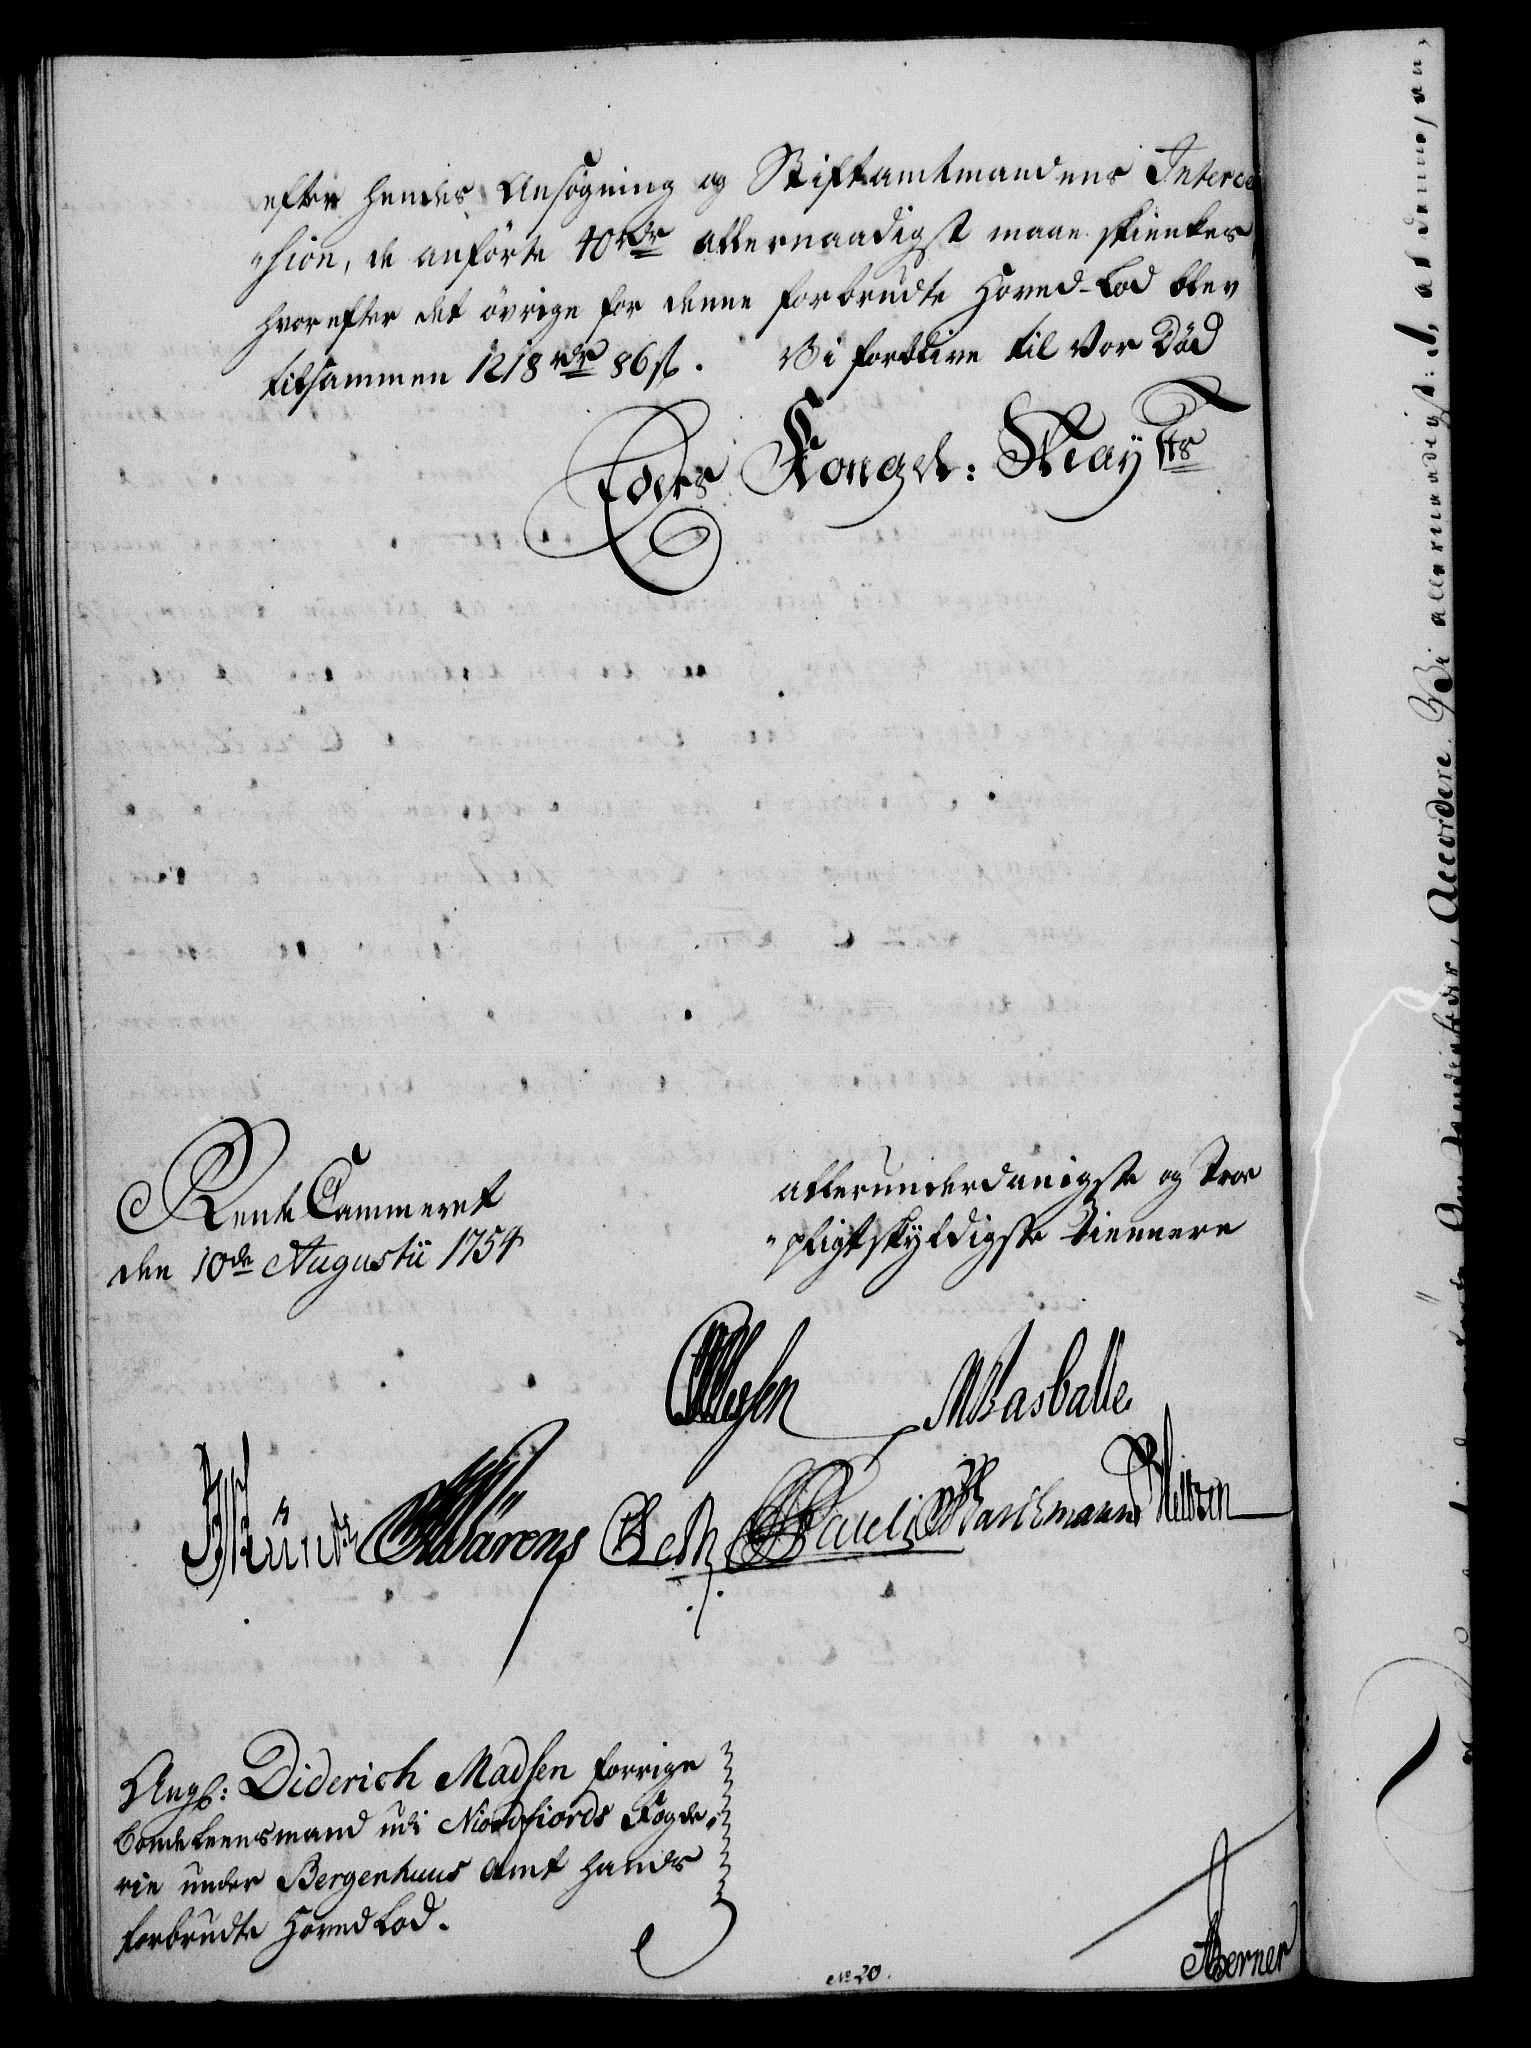 efter hendes Ansøgning og Stiftamtmandens Interces
"sion, de anförte 40 rdr allernaadigst maae skienkes
hvorefter det övrige for denne forbrudte Hoved-Lod blev
tilsammen 1218 rdr 86 s. Vi forblive til Vor Död
Eders Kongel: Mayts
Rente Cammeret
den 10de Augustii 1754
allerunderdanigste og Troe
"pligtskyldigste Tiennere
Wasballe
Wärens Pauli
Ang: Diderich Madsen forrige
Bonde Leensmand udi Nordfiords Fogde,
rie under Bergenhuus Amt hands
forbrudte Hoved Lod.
Berner
No 20.
Accordere. Vi allernaadigst: at denne